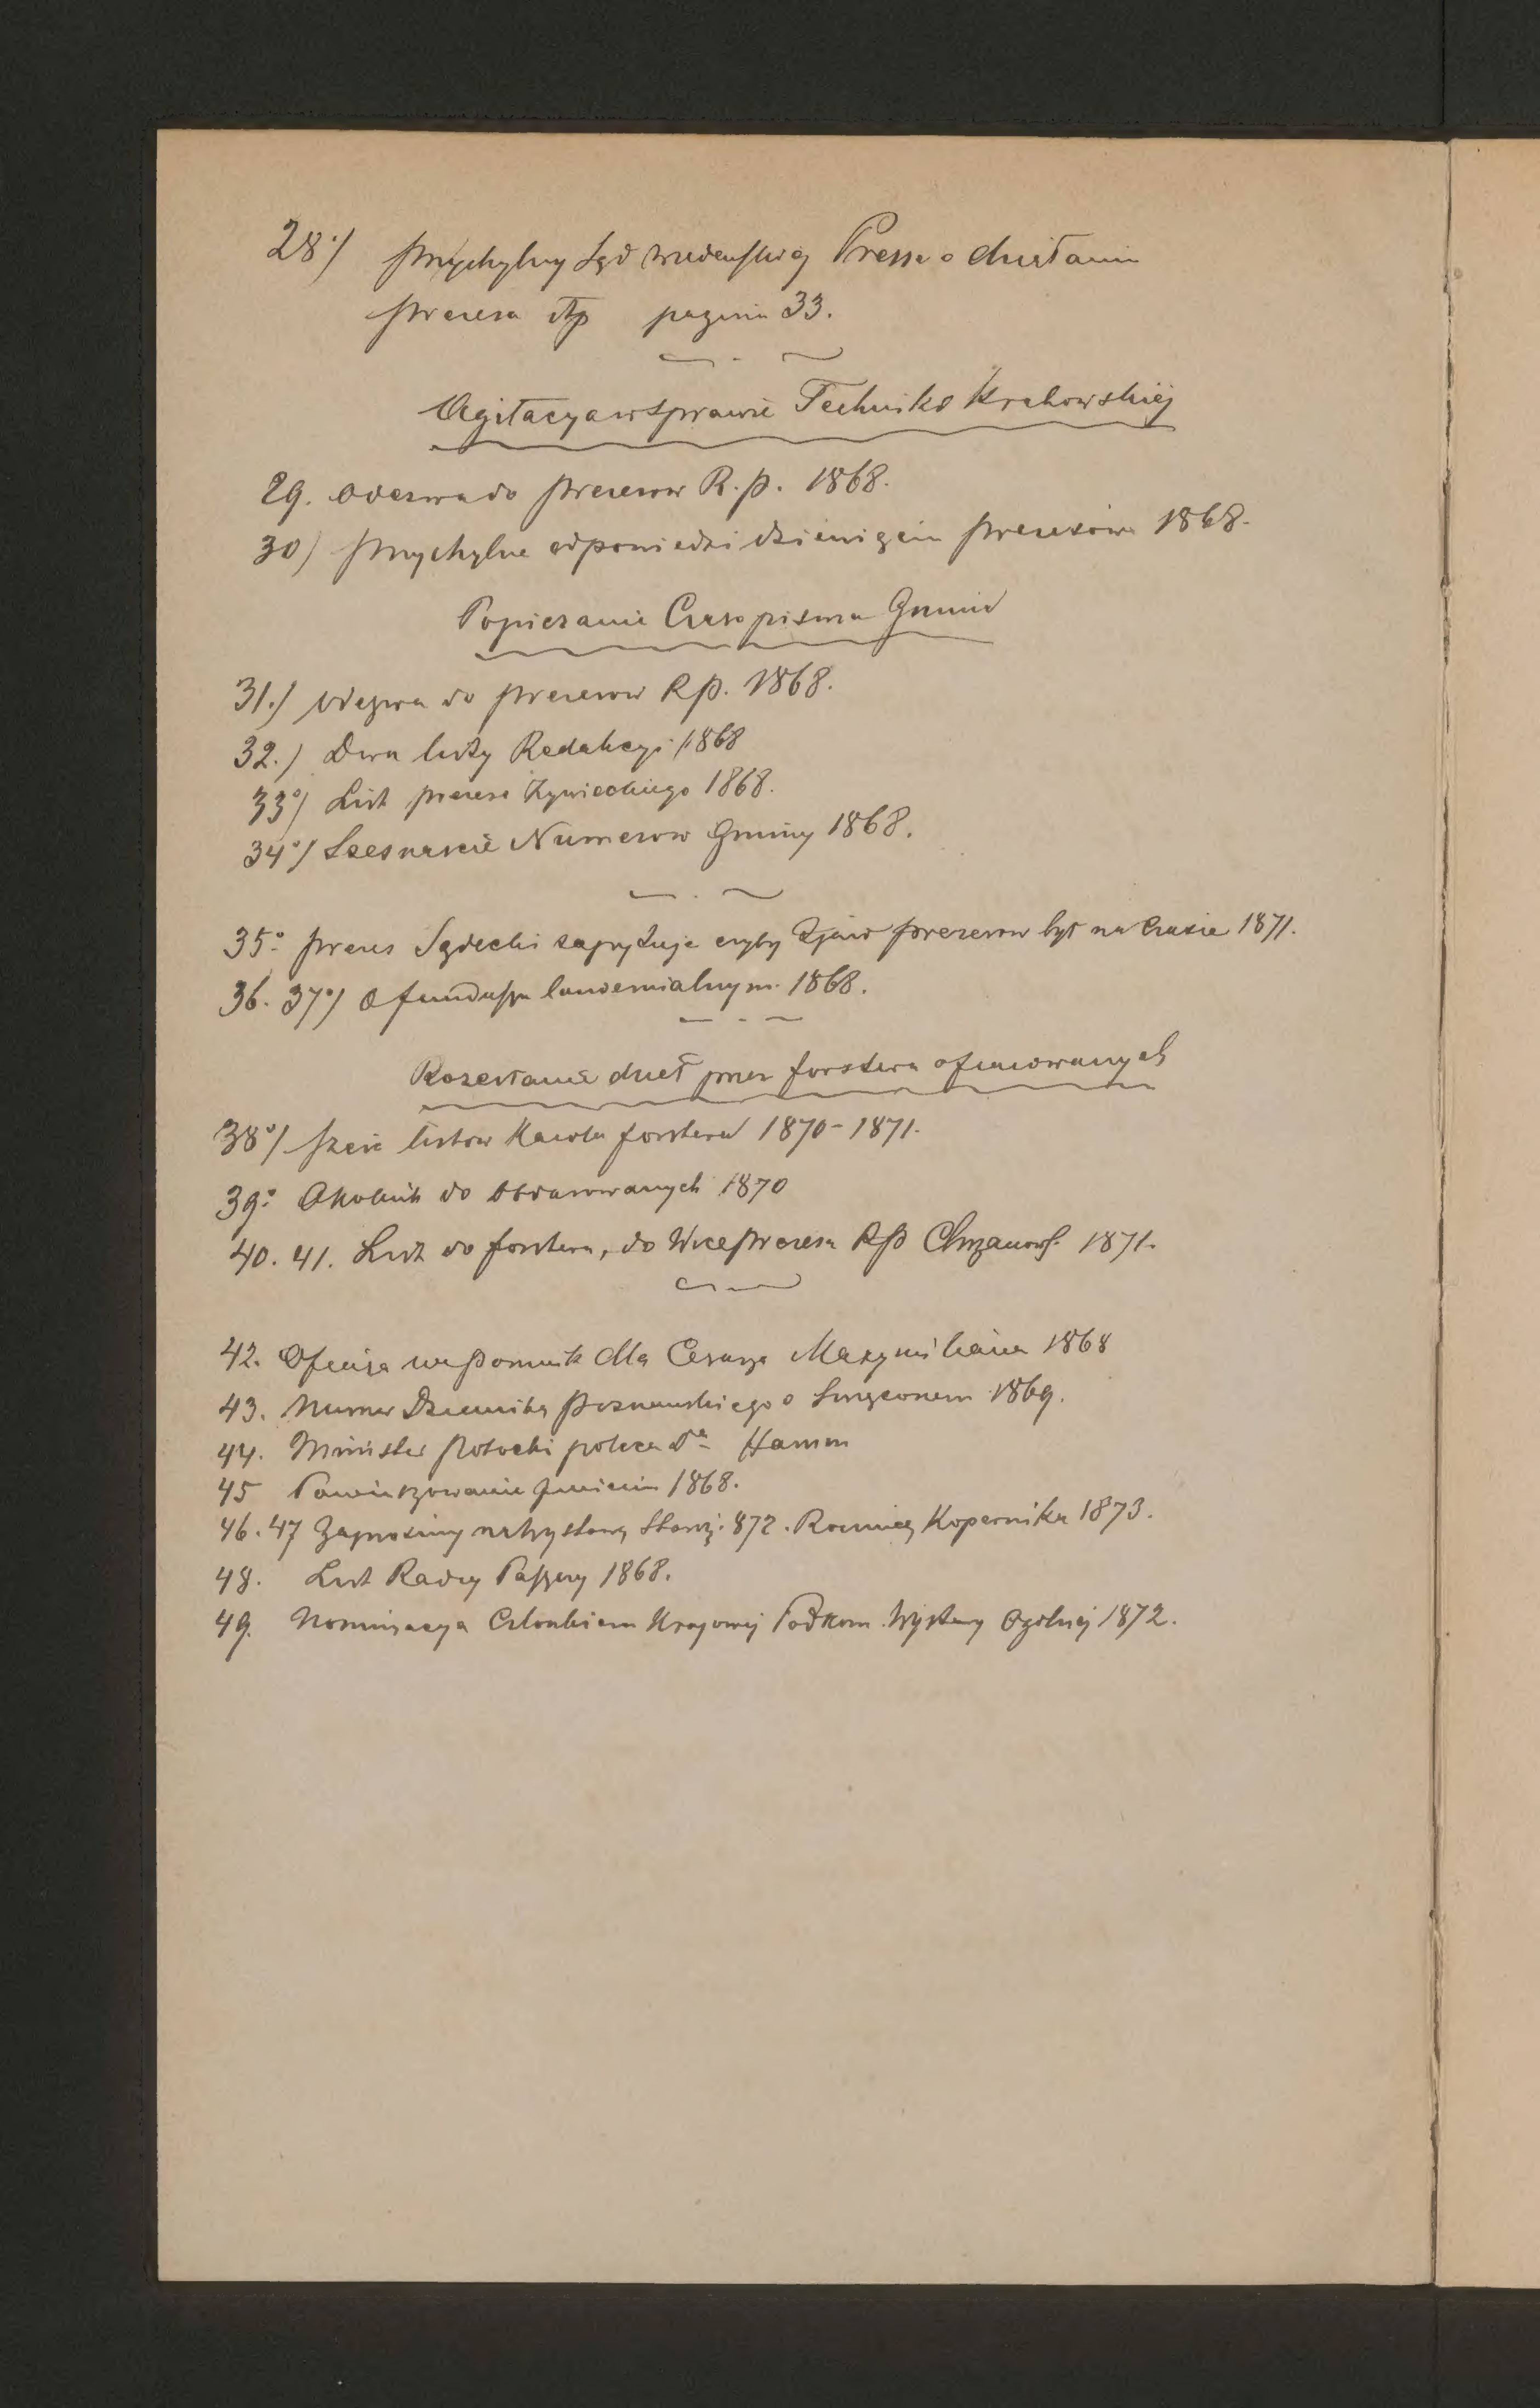 28°/ Przychylny Sąd wiedeńskiej Presse o działaniu
prezesa Rp pagina 33.
Agitacya w sprawie Techniki Krakowskiej
29. Odezwa do prezesow R. p. 1868.
30) Przychylne odpowiedzi dziewięciu prezesów 1868.
Popieranie Czasopisma Gmina
31.) Odezwa do prezesow Rp. 1868.
32.) Dwa listy Redakcyi 1868
33°/ List prezesa Żywieckiego 1868.
34°/ Szesnaście Numerow Gminy 1868.
35° prezes Sądecki zapytuje czyby Zjazd prezesow był na czasie 1871.
36. 37°/ O funduszu laudemialnym. 1868.
Rozesłanie dzieł przez forstera ofiarowanych
38°/ sześć listow Karola forstera 1870-1871.
39° Okolnik do obdarowanych 1870
40. 41. List do forstera, do Wiceprezesa Rp Chrzanows. 1871.
42. Ofiara na pomnik dla Cesarza Maxymiliana 1868
43. Numer Dziennika poznanskiego o 1869.
44. Minister Potocki poleca Dra Hamm
45 Powinszowanie 1868.
46. 47 Zaprosiny na wystawę 872. Rocznicę Kopernika 1873.
48. List Radcy 1868.
49. Nominacya Członkiem Krajowej Podkom. Wystawy Ogólnej 1872.